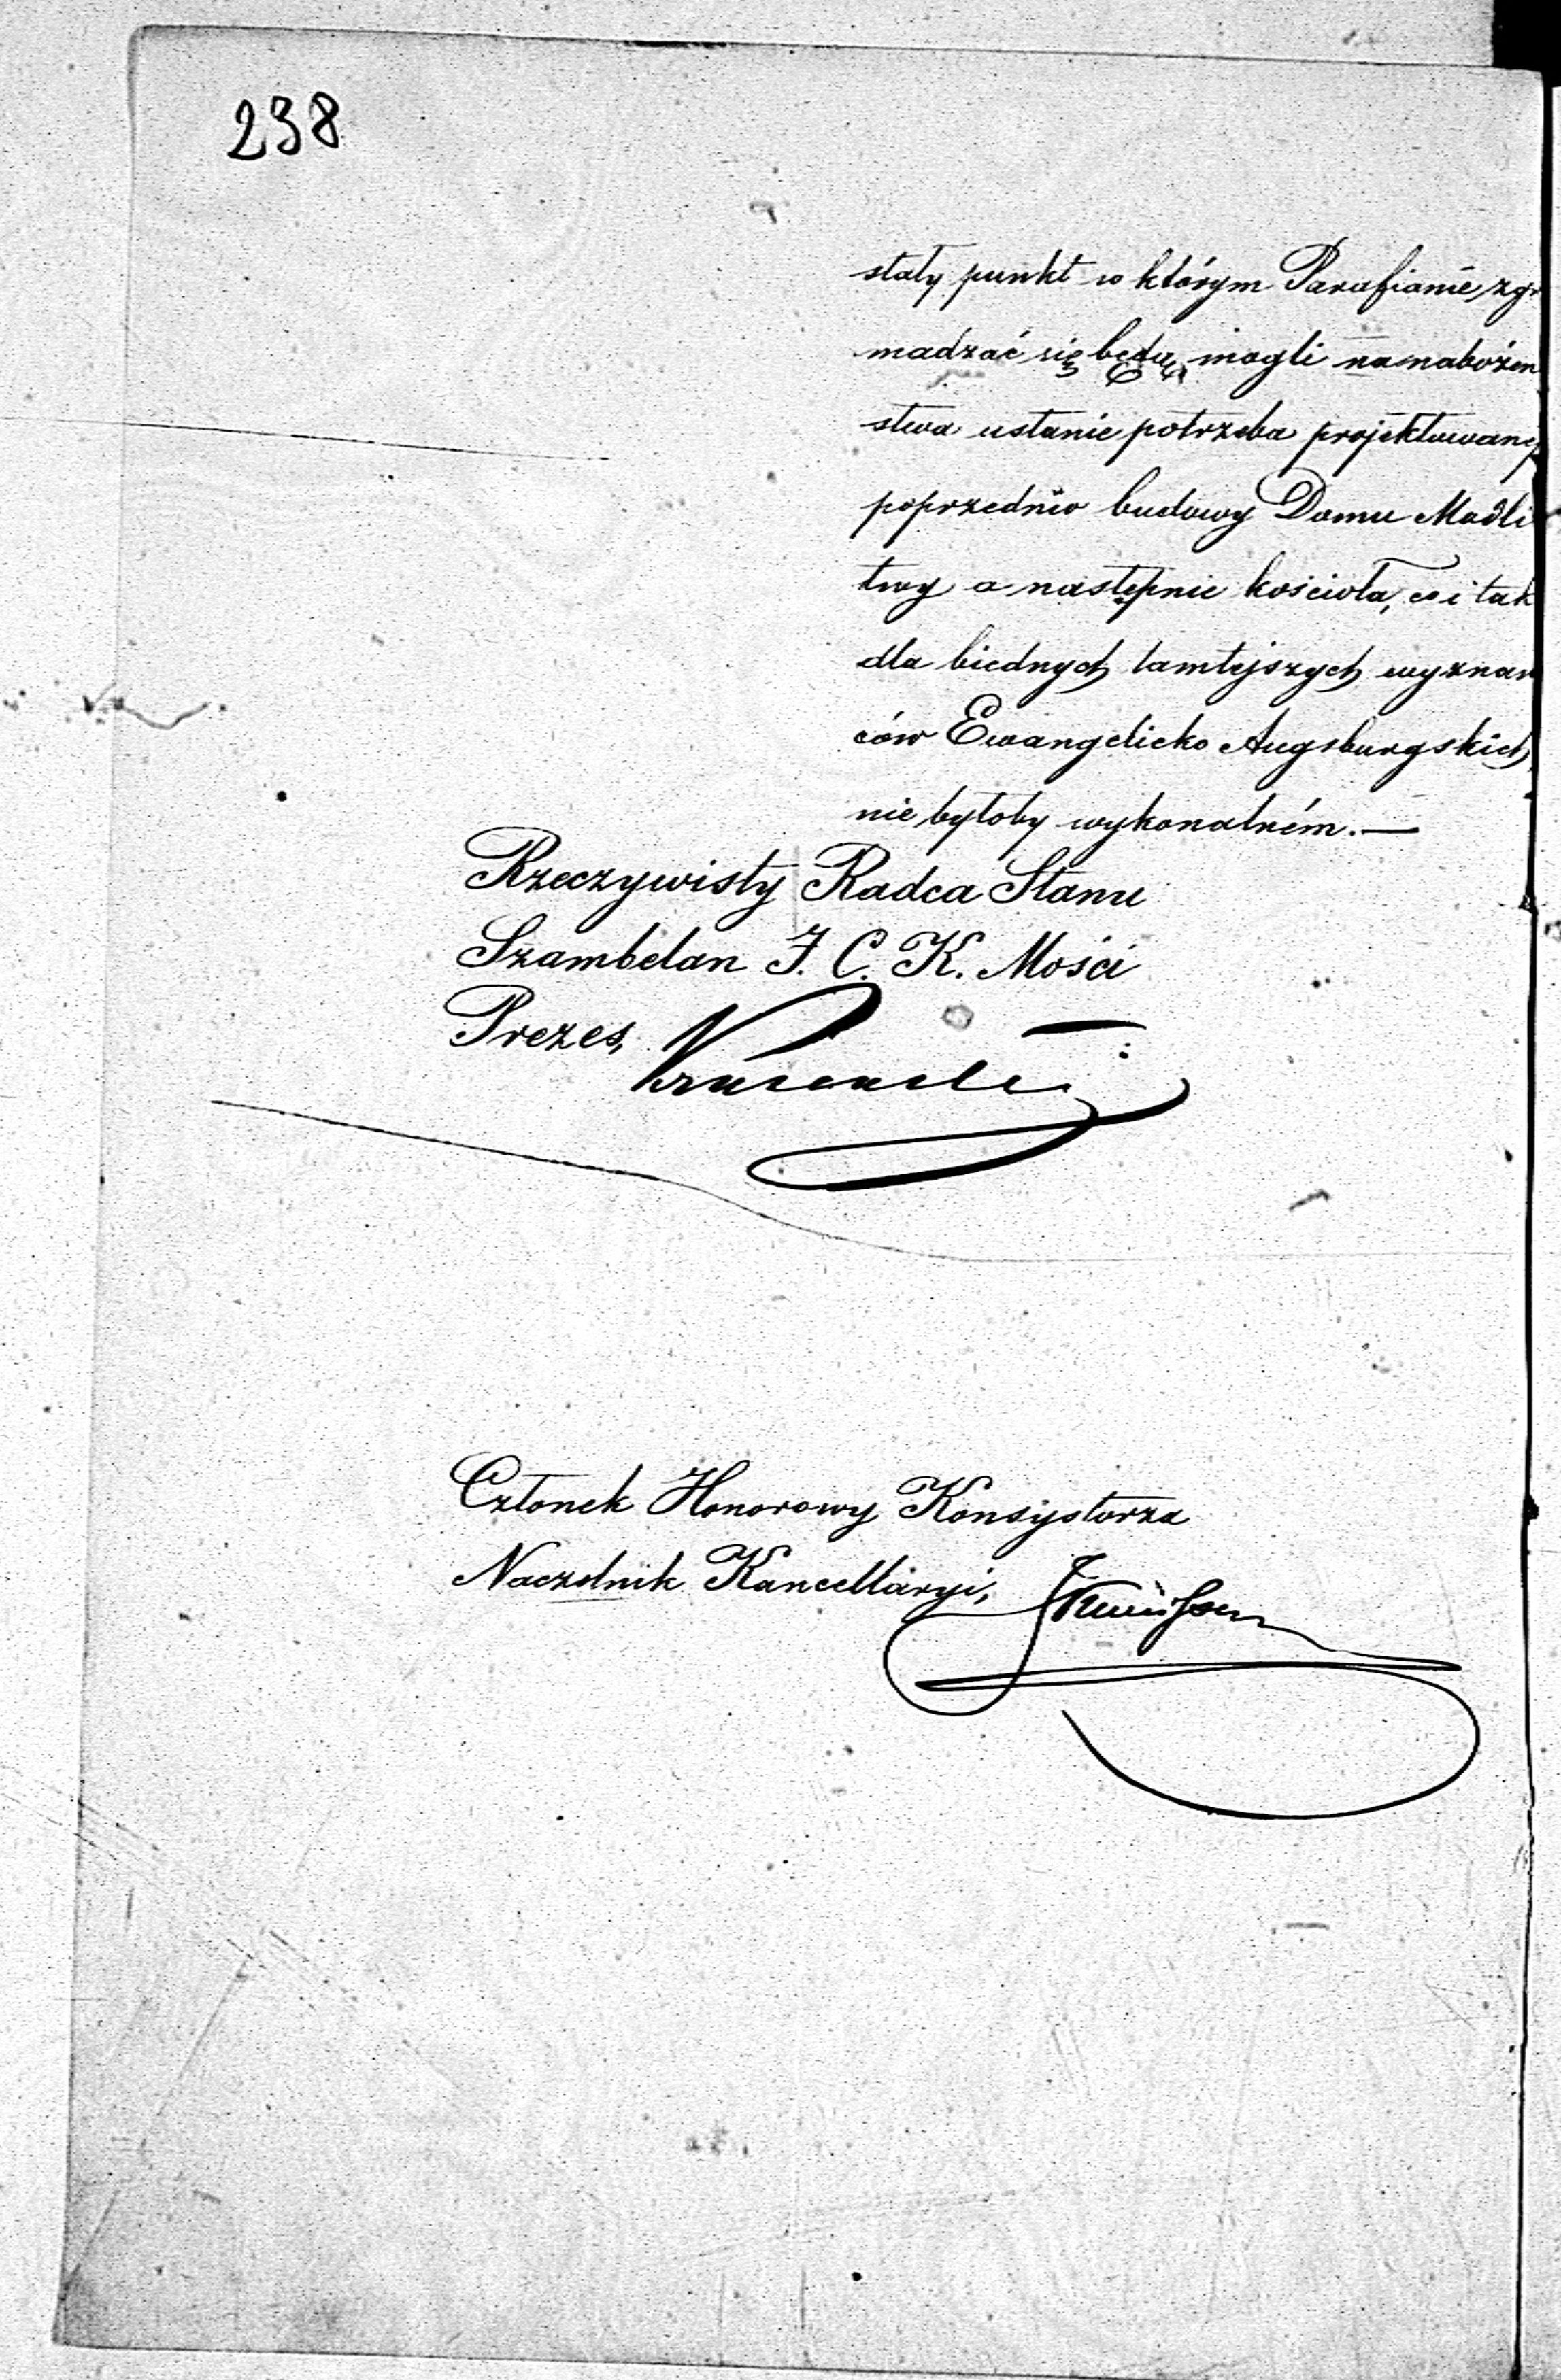 238
stały punkt w którym Parafianie zgr
madzać się będą mogli na nabożeń
stwa ustanie potrzeba projektowanej
poprzednio budowy Domu Modli
twy a następnie kościoła, co i tak
dla biednych tamtejszych wyznaw
ców Ewangelicko Augsburgskich
nie byłoby wykonalném.—
Rzeczywisty Radca Stanu
Szambelan J. C. K. Mości
Prezes,
Członek Honorowy Konsystorza
Naczelnik Kancellaryi,